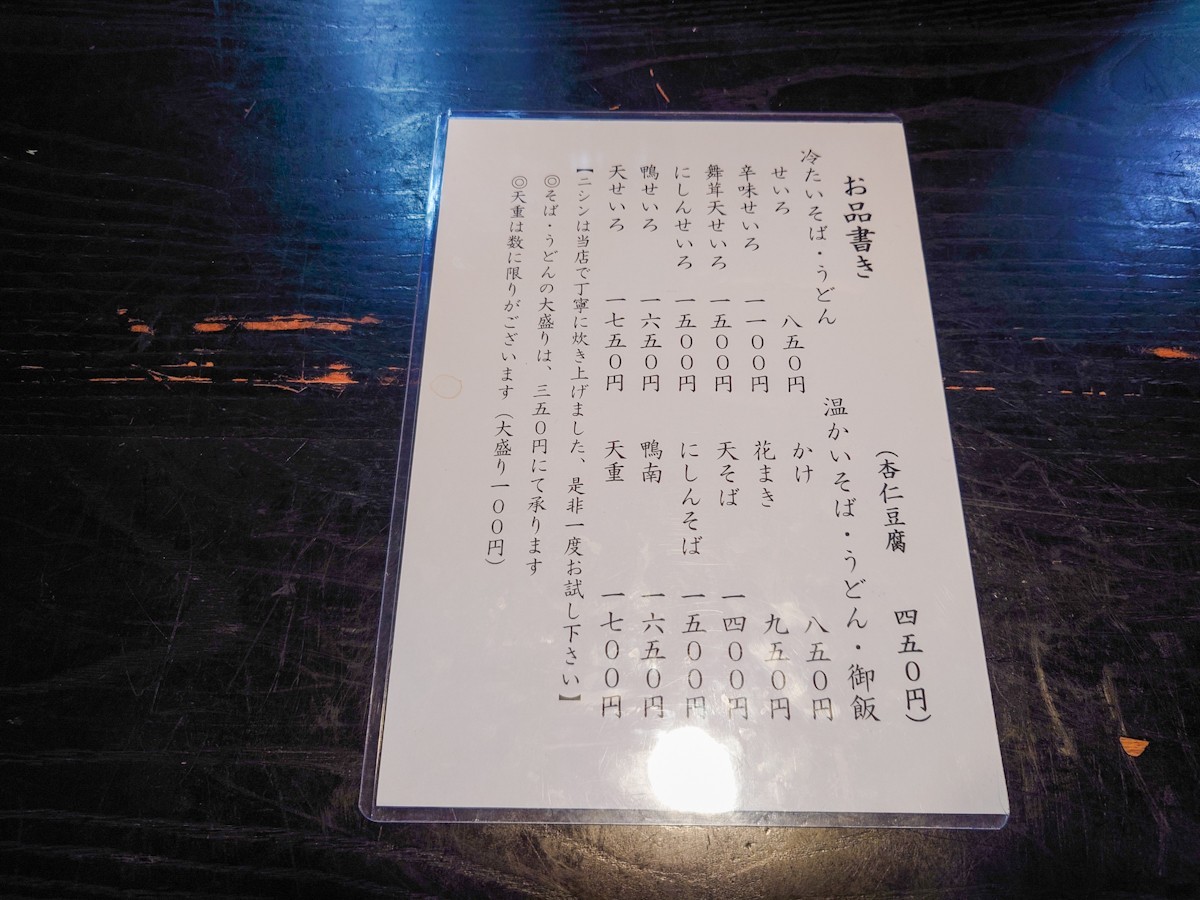 お品書き
(杏仁豆腐 四五〇円)
冷たいそば・うどん
せいろ 八五〇円
辛味せいろ 一一〇〇円
舞茸天せいろ 一五〇〇円
にしんせいろ 一五〇〇円
鴨せいろ 一六五〇円
天せいろ 一七五〇円
温かいそば・うどん・御飯
かけ 八五〇円
花まき 九五〇円
天そば 一四〇〇円
にしんそば 一五〇〇円
鴨南 一六五〇円
天重 一七〇〇円
【ニシンは当店で丁寧に炊き上げました、是非一度お試し下さい】
◎そば・うどんの大盛りは、三五〇円にて承ります
◎天重は数に限りがございます(大盛り一〇〇円)